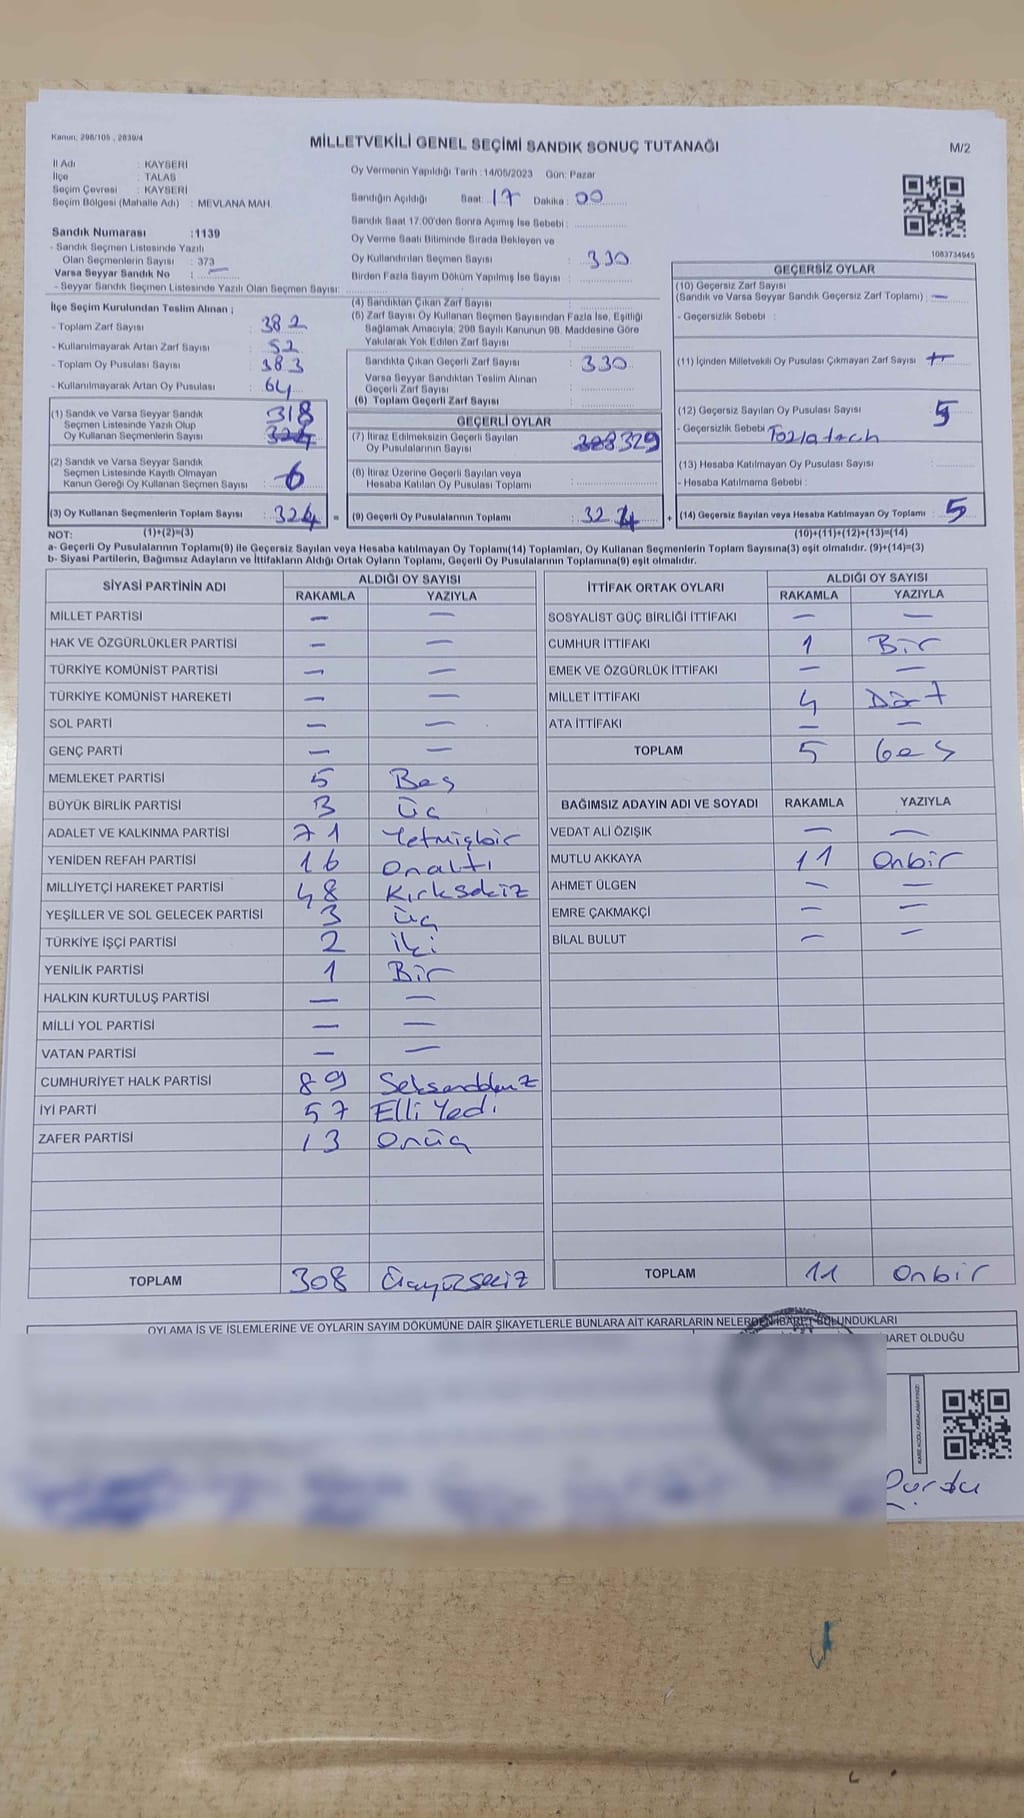 Kanun: 298/105 , 2839/4
MİLLETVEKİLİ GENEL SEÇİMİ SANDIK SONUÇ TUTANAĞI
M/2
İl Adı : KAYSERİ
İlçe : TALAS
Seçim Çevresi : KAYSERİ
Seçim Bölgesi (Mahalle Adı) : MEVLANA MAH.
Sandık Numarası :1139
- Sandık Seçmen Listesinde Yazılı
Olan Seçmenlerin Sayısı : 373
Varsa Seyyar Sandık No : —
- Seyyar Sandık Seçmen Listesinde Yazılı Olan Seçmen Sayısı:
Oy Vermenin Yapıldığı Tarih : 14/05/2023 Gün: Pazar
Sandığın Açıldığı Saat: 17 Dakika : 00
Sandık Saat 17:00'den Sonra Açımış İse Sebebi :
Oy Verme Saati Bitiminde Sırada Bekleyen ve
Oy Kullandırılan Seçmen Sayısı : 330
Birden Fazla Sayım Döküm Yapılmış İse Sayısı :
1083734945
İlçe Seçim Kurulundan Teslim Alınan ;
- Toplam Zarf Sayısı : 382
- Kullanılmayarak Artan Zarf Sayısı : 52
- Toplam Oy Pusulası Sayısı : 383
- Kullanılmayarak Artan Oy Pusulası : 64
(1) Sandık ve Varsa Seyyar Sandık
Seçmen Listesinde Yazılı Olup
Oy Kullanan Seçmenlerin Sayısı : 318 324
(2) Sandık ve Varsa Seyyar Sandık
Seçmen Listesinde Kayıtlı Olmayan
Kanun Gereği Oy Kullanan Seçmen Sayısı : 6
(3) Oy Kullanan Seçmenlerin Toplam Sayısı : 324 =
(1)+(2)=(3)
(4) Sandıktan Çıkan Zarf Sayısı :
(5) Zarf Sayısı Oy Kullanan Seçmen Sayısından Fazla İse, Eşitliği
Sağlamak Amacıyla, 298 Sayılı Kanunun 98. Maddesine Göre
Yakılarak Yok Edilen Zarf Sayısı :
Sandıkta Çıkan Geçerli Zarf Sayısı : 330
Varsa Seyyar Sandıktan Teslim Alınan
Geçerli Zarf Sayısı :
(6) Toplam Geçerli Zarf Sayısı :
GEÇERLİ OYLAR
(7) İtiraz Edilmeksizin Geçerli Sayılan
Oy Pusulalarının Sayısı : 329
(8) İtiraz Üzerine Geçerli Sayılan veya
Hesaba Katılan Oy Pusulası Toplamı :
(9) Geçerli Oy Pusulalarının Toplamı : +
GEÇERSİZ OYLAR
(10) Geçersiz Zarf Sayısı
(Sandık ve Varsa Seyyar Sandık Geçersiz Zarf Toplamı) : —
- Geçersizlik Sebebi :
(11) İçinden Milletvekili Oy Pusulası Çıkmayan Zarf Sayısı :
(12) Geçersiz Sayılan Oy Pusulası Sayısı : 5
- Geçersizlik Sebebi :
(13) Hesaba Katılmayan Oy Pusulası Sayısı :
- Hesaba Katılmama Sebebi :
(14) Geçersiz Sayılan veya Hesaba Katılmayan Oy Toplamı : 5
(10)+(11)+(12)+(13)=(14)
NOT:
a- Geçerli Oy Pusulalarının Toplamı(9) ile Geçersiz Sayılan veya Hesaba katılmayan Oy Toplamı(14) Toplamları, Oy Kullanan Seçmenlerin Toplam Sayısına(3) eşit olmalıdır. (9)+(14)=(3)
b- Siyasi Partilerin, Bağımsız Adayların ve İttifakların Aldığı Ortak Oyların Toplamı, Geçerli Oy Pusulalarının Toplamına(9) eşit olmalıdır.
SİYASİ PARTİNİN ADI ALDIĞI OY SAYISI
RAKAMLA YAZIYLA
MİLLET PARTİSİ — —
HAK VE ÖZGÜRLÜKLER PARTİSİ — —
TÜRKİYE KOMÜNİST PARTİSİ — —
TÜRKİYE KOMÜNİST HAREKETİ — —
SOL PARTİ — —
GENÇ PARTİ — —
MEMLEKET PARTİSİ 5 Beş
BÜYÜK BİRLİK PARTİSİ 3 Üç
ADALET VE KALKINMA PARTİSİ 71 Yetmişbir
YENİDEN REFAH PARTİSİ 16 Onaltı
MİLLİYETÇİ HAREKET PARTİSİ 48 Kırksekiz
YEŞİLLER VE SOL GELECEK PARTİSİ 3 Üç
TÜRKİYE İŞÇİ PARTİSİ 2 İki
YENİLİK PARTİSİ 1 Bir
HALKIN KURTULUŞ PARTİSİ — —
MİLLİ YOL PARTİSİ — —
VATAN PARTİSİ — —
CUMHURİYET HALK PARTİSİ 89 Seksendokuz
İYİ PARTİ 57 Elli Yedi
ZAFER PARTİSİ 13 Onüç
TOPLAM 308 Üçyüzsekiz
İTTİFAK ORTAK OYLARI ALDIĞI OY SAYISI
RAKAMLA YAZIYLA
SOSYALİST GÜÇ BİRLİĞİ İTTİFAKI — —
CUMHUR İTTİFAKI 1 Bir
EMEK VE ÖZGÜRLÜK İTTİFAKI — —
MİLLET İTTİFAKI 4 Dört
ATA İTTİFAKI — —
TOPLAM 5 beş
BAĞIMSIZ ADAYIN ADI VE SOYADI RAKAMLA YAZIYLA
VEDAT ALİ ÖZIŞIK — —
MUTLU AKKAYA 11 Onbir
AHMET ÜLGEN — —
EMRE ÇAKMAKÇİ — —
BİLAL BULUT — —
TOPLAM 11 Onbir
OYLAMA İŞ VE İŞLEMLERİNE VE OYLARIN SAYIM DÖKÜMÜNE DAİR ŞİKAYETLERLE BUNLARA AİT KARARLARIN NELERDEN İBARET BULUNDUKLARI
BARET OLDUĞU